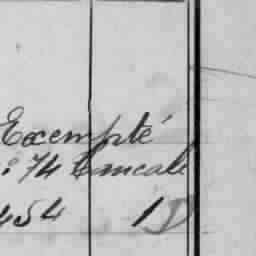 Exempté
: 74 Cancale
454 1D